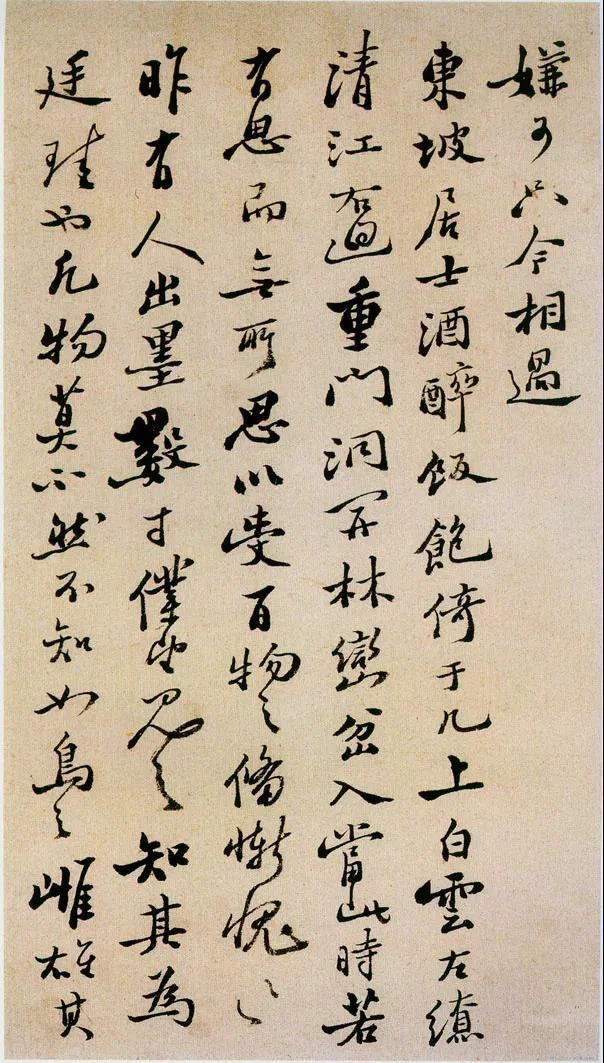 嫌可只令相過
東坡居士酒醉飯飽倚于几上白雲左繚
清江右迴重門洞開林巒坌入當此時若
有思而無所思以受百物之備慚愧〻
昨有人出墨數寸僕望見之知其為
廷珪也凡物莫不然不知如鳥之雌雄其